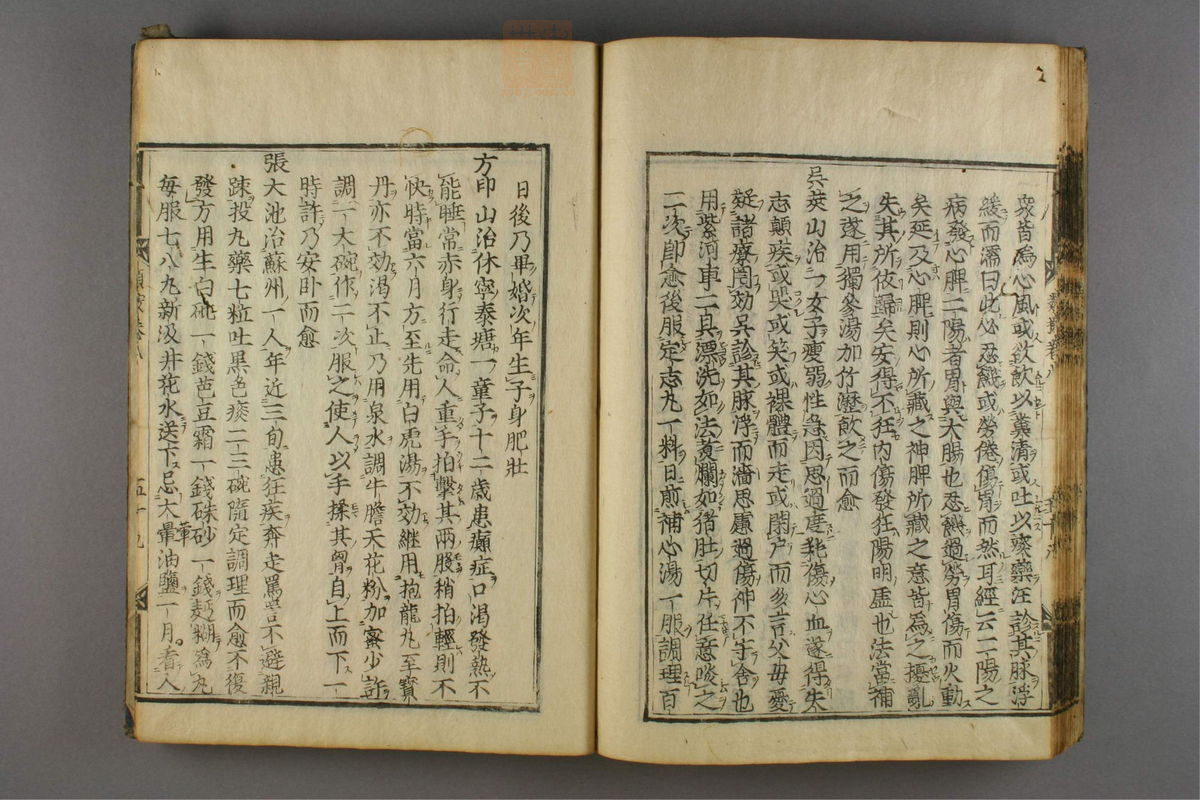 衆皆為心風或欲飲以糞清或吐以痰藥汪診其脉浮
緩而濡曰此必忍饑或勞倦傷胃而然耳經云二陽之
病發心脾二陽者胃與大腸也忍饑過勞胃傷而火動
矣延及心脾則心所藏之神脾所藏之意皆為之擾亂
失其所依歸矣安得不狂內傷發狂陽明虛也法當補
之遂用獨參湯加竹瀝飲之而愈
吳茭山治一女子瘦弱性急因思過度耗傷心血遂得失
志顛疾或哭或笑或裸體而走或閉户而多言父母憂
疑諸療罔効吳診其脉浮而濇思慮過傷神不守舍也
用紫河車二具漂洗如法煮爛如猪肚切片任意啖之
二次卽愈後服定志丸一料日煎補心湯一服調理百
日後乃畢婚次年生子身肥壯
方印山治休寧泰塘一童子十二歲患癲症口渴發熱不
能睡常赤身行走命人重手拍擊其兩股稍拍輕則不
快時當六月方至先用白虎湯不効継用抱龍丸至寶
丹亦不効渴不止乃用泉水調牛膽天花粉加蜜少許
調一大碗作一次服之使人以手揉其胷自上而下一
時許乃安卧而愈
張大池治蘇州一人年近三旬患狂疾奔走罵詈不避親
踈投丸藥七粒吐黑色痰二三碗隨定調理而愈不復
發方用生白砒一錢芭豆霜一錢硃砂一錢麵糊為丸
每服七八丸新汲井花水送下忌大葷油鹽一月看人
五十九